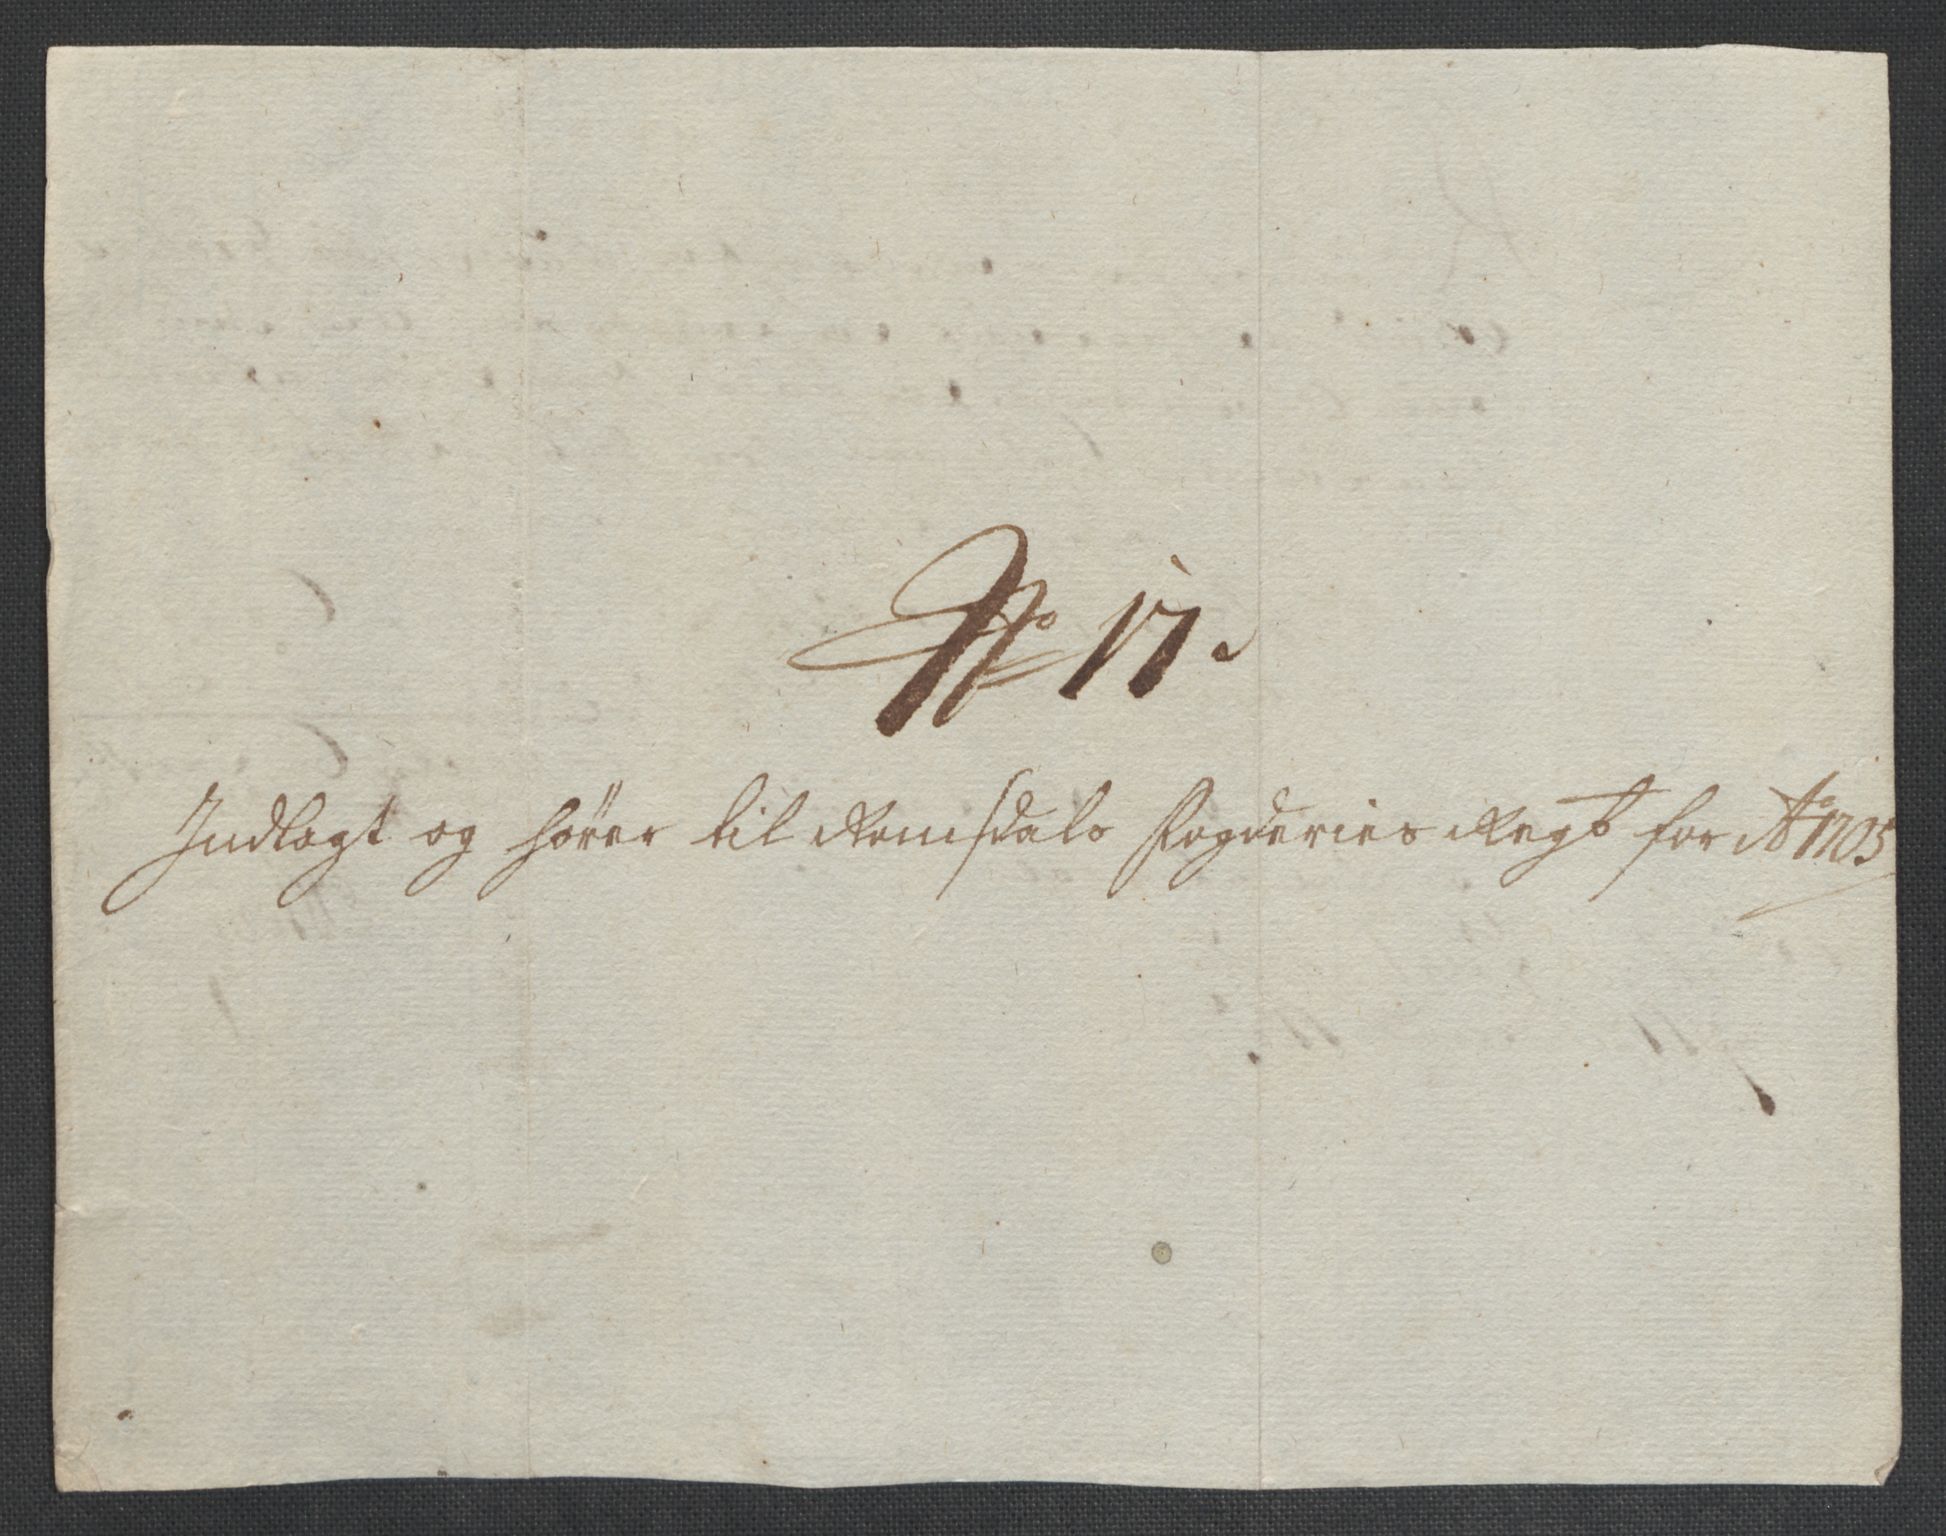 No 17.
Indlagt og hörer til Romsdals Fogderies Regsb for Ao 1705